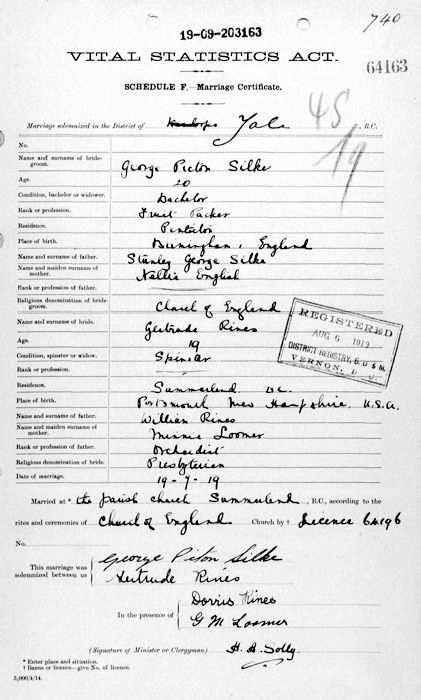 740
19-09-203163
VITAL STATISTICS ACT.
64163
SCHEDULE F.—Marriage Certificate.
48
19
Marriage solemnized in the District of Kamloops Yale, B.C.
No.
Name and surname of bridegroom. George Picton Silke
Age. 20
Condition, bachelor or widower. Bachelor
Rank or profession. Fruit Packer
Residence. Penticton
Place of birth. Birmingham, England
Name and surname of father. Stanley George Silke
Name and maiden surname of mother. Nellie English
Rank or profession of father.
Religious denomination of bridegroom. Church of England
Name and surname of bride. Gertrude Rines
Age. 19
Condition, spinster or widow. Spinster
Rank or profession.
Residence. Summerland B.C.
Place of birth. Portsmouth New Hampshire. U.S.A.
Name and surname of father. William Rines
Name and maiden surname of mother. Minnie Loomer
Rank or profession of father. Orchardist
Religious denomination of bride. Presbyterian
Date of marriage. 19-7-19
REGISTERED
AUG 5 1919
DISTRICT REGISTRY, B. D. & M.
VERNON, B. C.
Married at * the parish church Summerland, B.C., according to the
rites and ceremonies of Church of England Church by † Licence 64196
No.
This marriage was solemnized between us
George Picton Silke
Gertrude Rines
In the presence of
Dorris Rines
G M Loomer
(Signature of Minister or Clergyman) H. A. Solly
* Enter place and situation.
† Banns or licence—give No. of licence.
5,000/4/14.